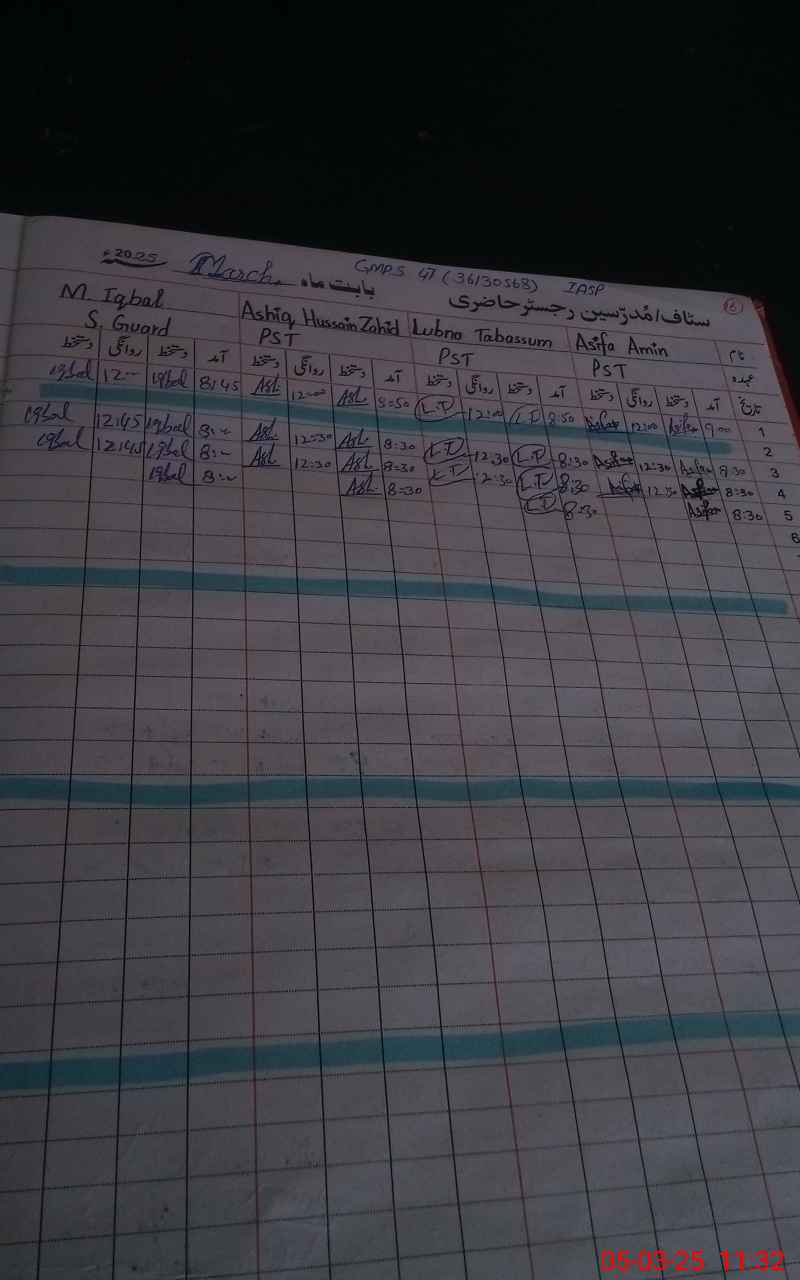 ستاف/مُدرّسین رجسٹر حاضری بابت ماہ March 2025ء
GMPS 47 (36130568) IASP
6
نام Asifa Amin Lubna Tabassum Ashiq Hussain Zahid M. Iqbal
عہدہ PST PST PST S. Guard
تاریخ آمد دستخط روانگی دستخط آمد دستخط روانگی دستخط آمد دستخط روانگی دستخط آمد دستخط روانگی دستخط
1 9:00 Asifa 12:00 Asifa 8:50 L.T 12:00 L.T 8:50 Ash 12:00 Ash 8:45 Iqbal 12:- Iqbal
2
3 8:30 Asifa 12:30 Asifa 8:30 L.T 12:30 L.T 8:30 Ash 12:30 Ash 8:- Iqbal 12:45 Iqbal
4 8:30 Asifa 12:30 Asifa 8:30 L.T 12:30 L.T 8:30 Ash 12:30 Ash 8:- Iqbal 12:45 Iqbal
5 8:30 Asifa 8:30 L.T 8:30 Ash 8:- Iqbal
6
05-03-25 11:32